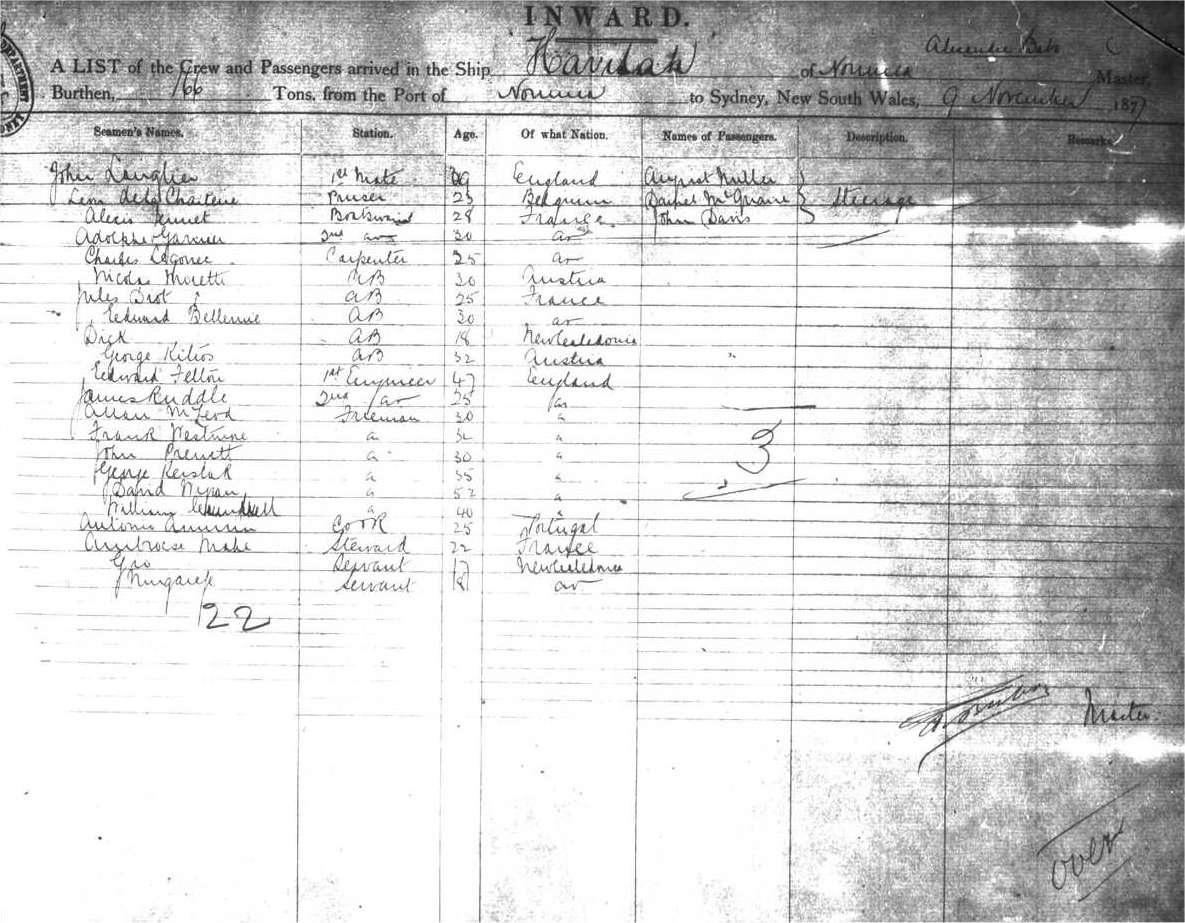 INWARD.
A LIST of the Crew and Passengers arrived in the Ship Havilah of Noumea Alexandre Master,
Burthen, 166 Tons, from the Port of Noumea to Sydney, New South Wales, 9 November 1877
Seamen's Names. Station. Age. Of what Nation. Names of Passengers. Description. Remarks
John 1st Mate England August Muller
Leon de la Purser 23 Belgium Daniel McGuaire Steerage
Alexis Boatswain 28 France John Davis
Adolphe Garnier 2nd do 30 do
Charles Carpenter 25 do
Nicolas Moretti AB 30 Austria
Jules Brot AB 25 France
Edward Bellemie AB 30 do
Dick AB 18 New Caledonia
George Kilios AB 32 Austria
Edward Felton 1st Engineer 47 England
James Ruddle 2nd do 25 do
Allan McLeod Fireman 30 "
Frank " "
John Prewett " 30 "
George " 35 "
David " 52 "
William " 40 "
Antonio Cook 25 Portugal
Ambroise Mahe Steward 22 France
Servant 17 New Caledonia
Servant 18 do
3
22
Master
over